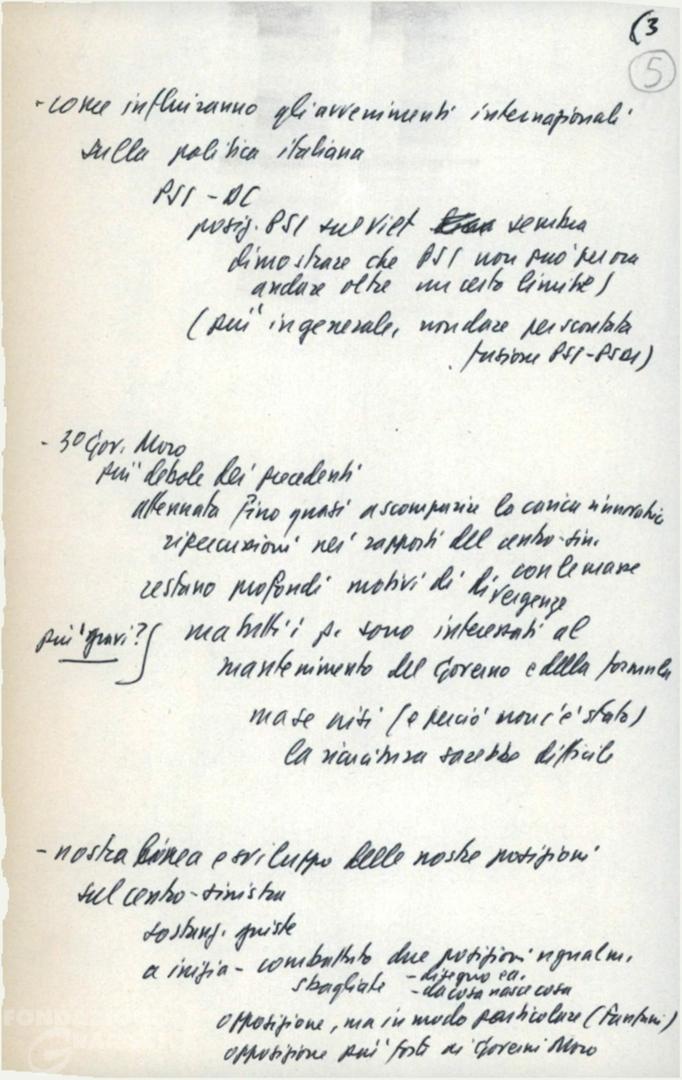 (3
5
- come influiranno gli avvenimenti internazionali
sulla politica italiana
PSI - DC
posiz. PSI sul Viet sembra
dimostrare che PSI non può per ora
andare oltre un certo limite)
(più in generale, non dare per scontata
fusione PSI-PSDI)
- 3o Gov. Moro
più debole dei precedenti
attenuata fino quasi a scomparire la carica
ripercuzioni nei rapporti del centro-sin.
con le masse
restano profondi motivi di divergenze
più gravi? ma tutti i p. sono interessati al
mantenimento del Governo e della formula
ma se crisi (e perciò non c'è stata)
la ricucitura sarebbe difficile
- nostra linea e sviluppo delle nostre posizioni
sul centro-sinistra
sostanz. giuste
a inizia - combattuto due posizioni ugualm.
sbagliate - disegno
- da cosa nasce cosa
opposizione, ma in modo particolare (Fanfani)
opposizione più forte ai Governi Moro
FONDAZIONE
GRAMSCI